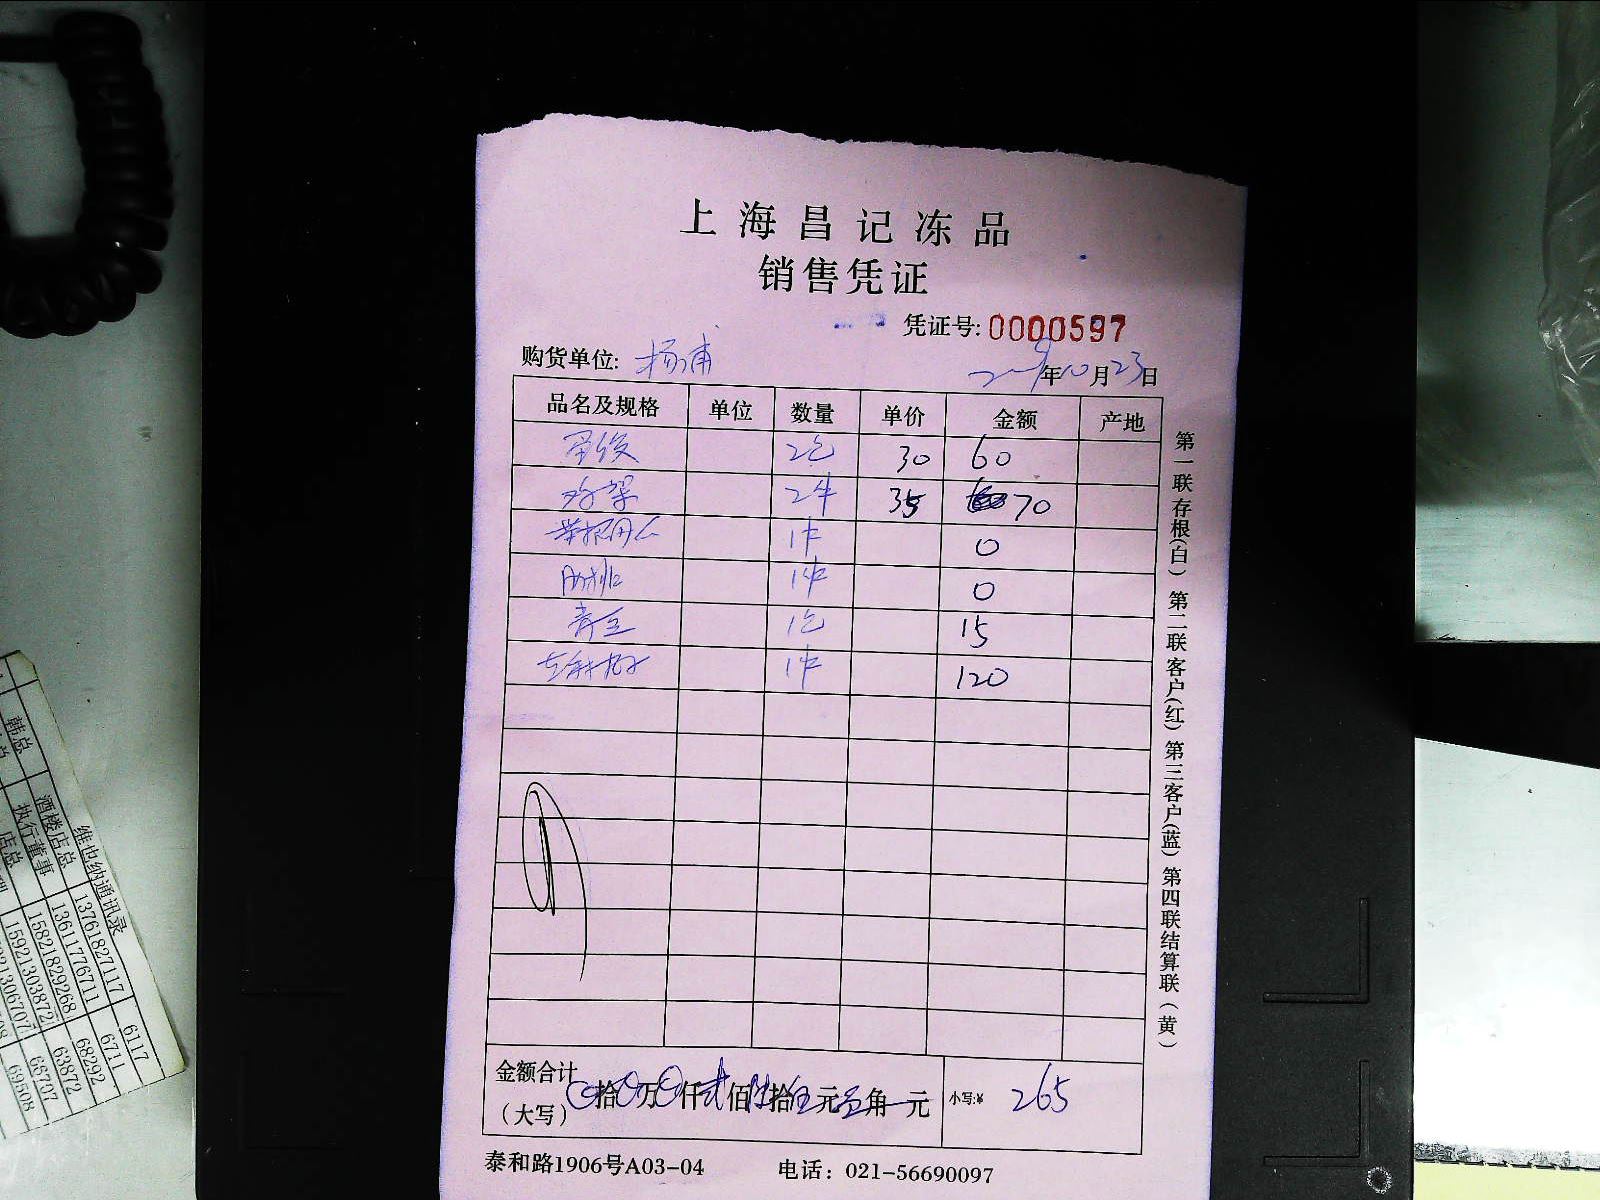 上海昌记冻品
销售凭证
凭证号: 0000597
购货单位: 杨浦
年10月23日
品名及规格 单位 数量 单价 金额 产地
2包 30 60
鸡架 2件 35 70
1件 0
1件 0
青豆 1包 15
1件 120
金额合计
(大写) 拾万仟贰佰陆拾伍元角元 小写:¥ 265
泰和路1906号A03-04 电话: 021-56690097
第一联存根(白) 第二联客户(红) 第三客户(蓝) 第四联结算联(黄)
维也纳通讯录
酒楼店总 13761827117 6117
执行董事 13611776711 6711
店总 15821829268 68292
15921303872 63872
韩总